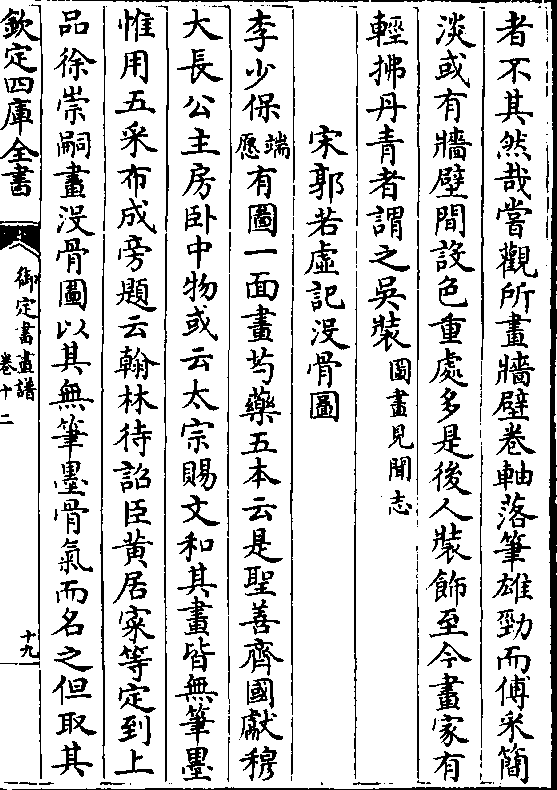 者不其然哉嘗觀所畫牆壁卷軸落筆雄勁而傅采簡
淡或有牆壁間設色重處多是後人裝飾至今畫家有
輕拂丹青者謂之吳裝圖畫見聞志
宋郭若虛記沒骨圖
李少保端愿有圖一面畫芍藥五本云是聖善齊國獻穆
大長公主房卧中物或云太宗賜文和其畫皆無筆墨
惟用五采布成旁題云翰林待詔臣黃居寀等定到上
品徐崇嗣畫沒骨圖以其無筆墨骨氣而名之但取其
欽定四庫全書
御定書畫譜
卷十二
十九